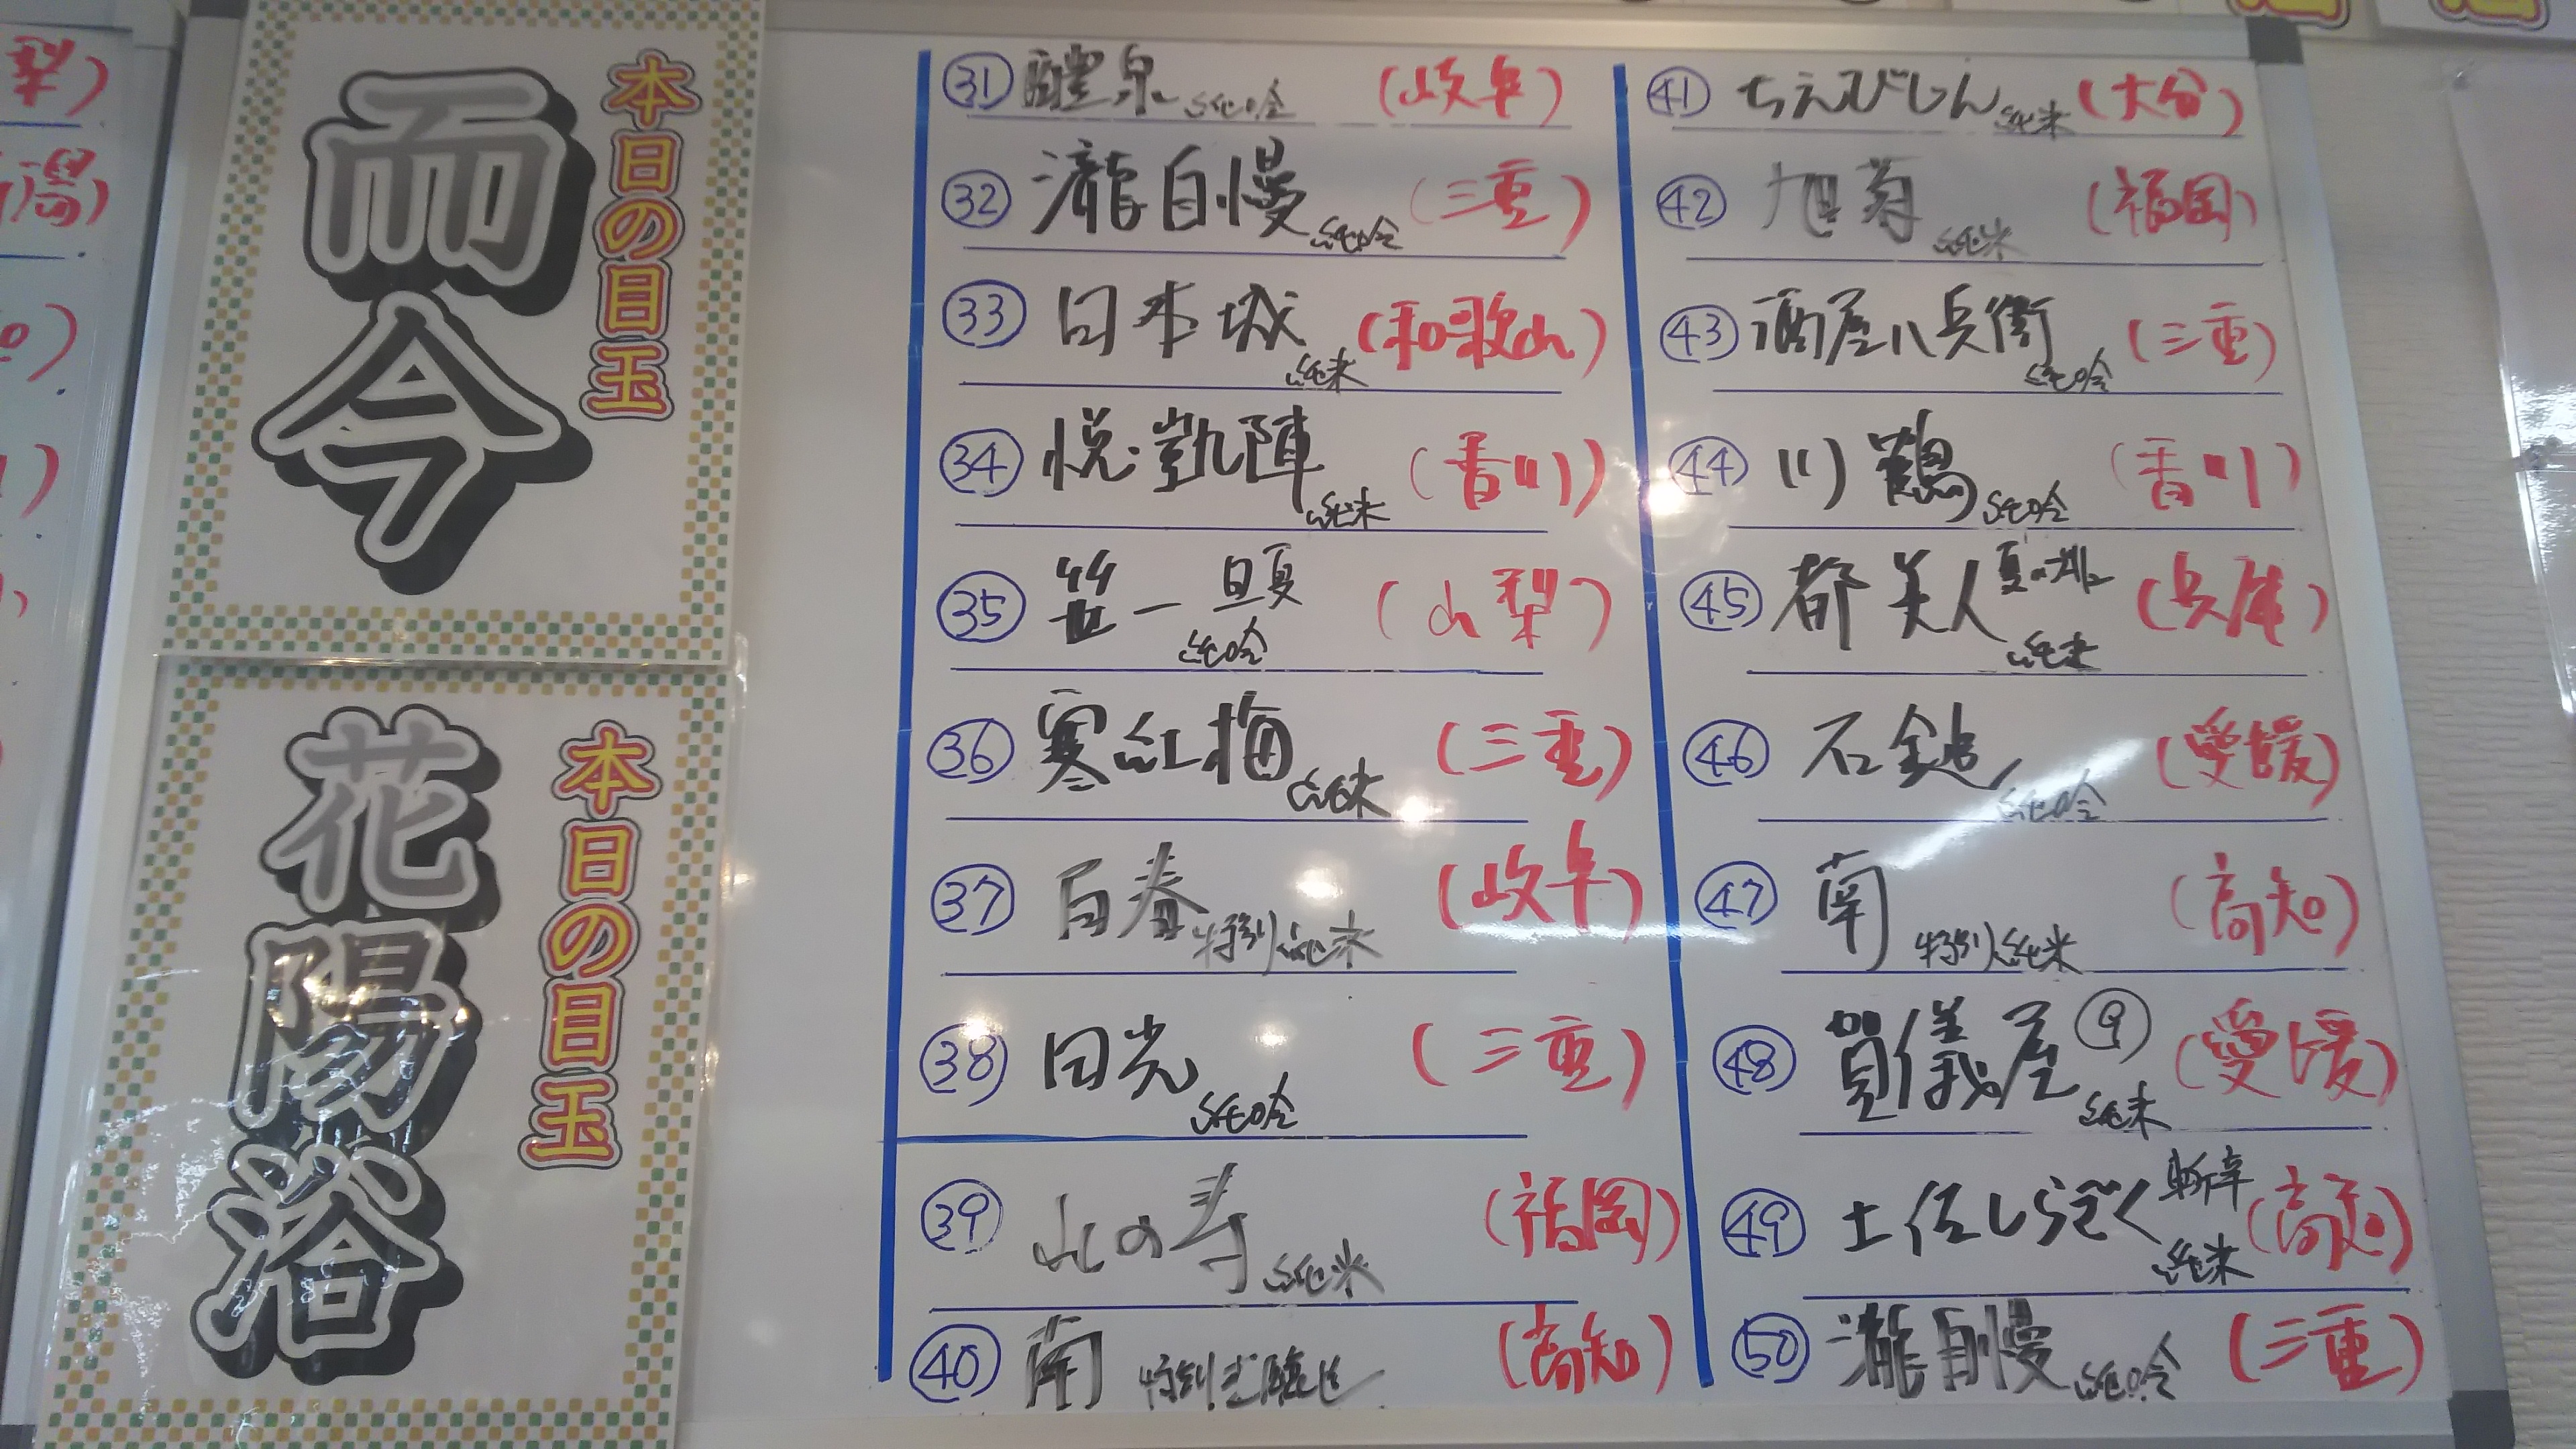 本日の目玉
而今
本日の目玉
花陽浴
㉛ 醴泉 純吟 (岐阜)
㉜ 瀧自慢 純吟 (三重)
㉝ 日本城 純米 (和歌山)
㉞ 悦凱陣 純米 (香川)
㉟ 笹一 夏 純吟 (山梨)
㊱ 寒紅梅 純米 (三重)
㊲ 百春 特別純米 (岐阜)
㊳ 田光 純吟 (三重)
㊴ 山の寿 純米 (福岡)
㊵ 南 特別本醸造 (高知)
㊶ ちえびじん 純米 (大分)
㊷ 旭菊 純米 (福岡)
㊸ 酒屋八兵衛 純吟 (三重)
㊹ 川鶴 純吟 (香川)
㊺ 都美人 夏の 純米 (兵庫)
㊻ 石鎚 純吟 (愛媛)
㊼ 南 特別純米 (高知)
㊽ 賀儀屋 ⑨ 純米 (愛媛)
㊾ 土佐しらぎく 斬辛 純米 (高知)
㊿ 瀧自慢 純吟 (三重)